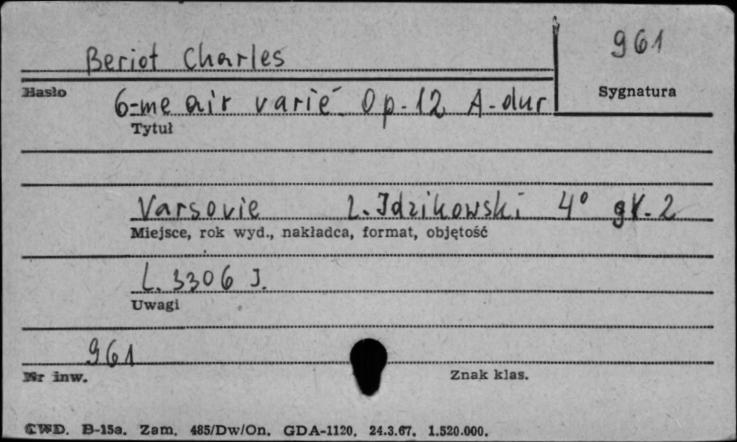 Beriot Charles
961
Hasło
Sygnatura
6-me air varié Op. 12 A-dur
Tytuł
Varsovie L. Idzikowski 4° gł. 2
Miejsce, rok wyd., nakładca, format, objętość
L. 3306 J.
Uwagi
961
Nr inw.
Znak klas.
CWD. B-15a. Zam. 485/Dw/On. GDA-1120. 24.3.67. 1.520.000.